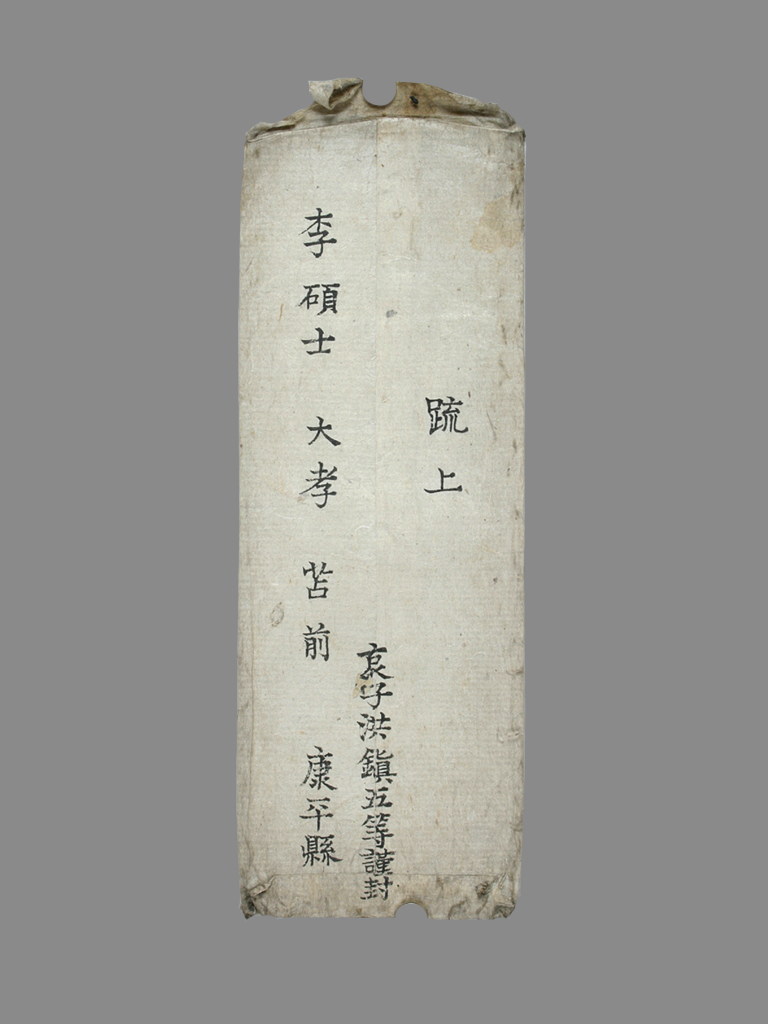 疏上
哀子洪鎭五等謹封
李碩士 大孝 苫前 康平縣